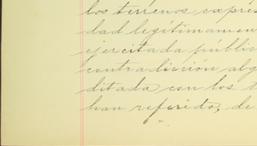 los terrenos expres
dad legítimamen
ejercitada públic
contradicción alg
ditada con los t
han referido, de